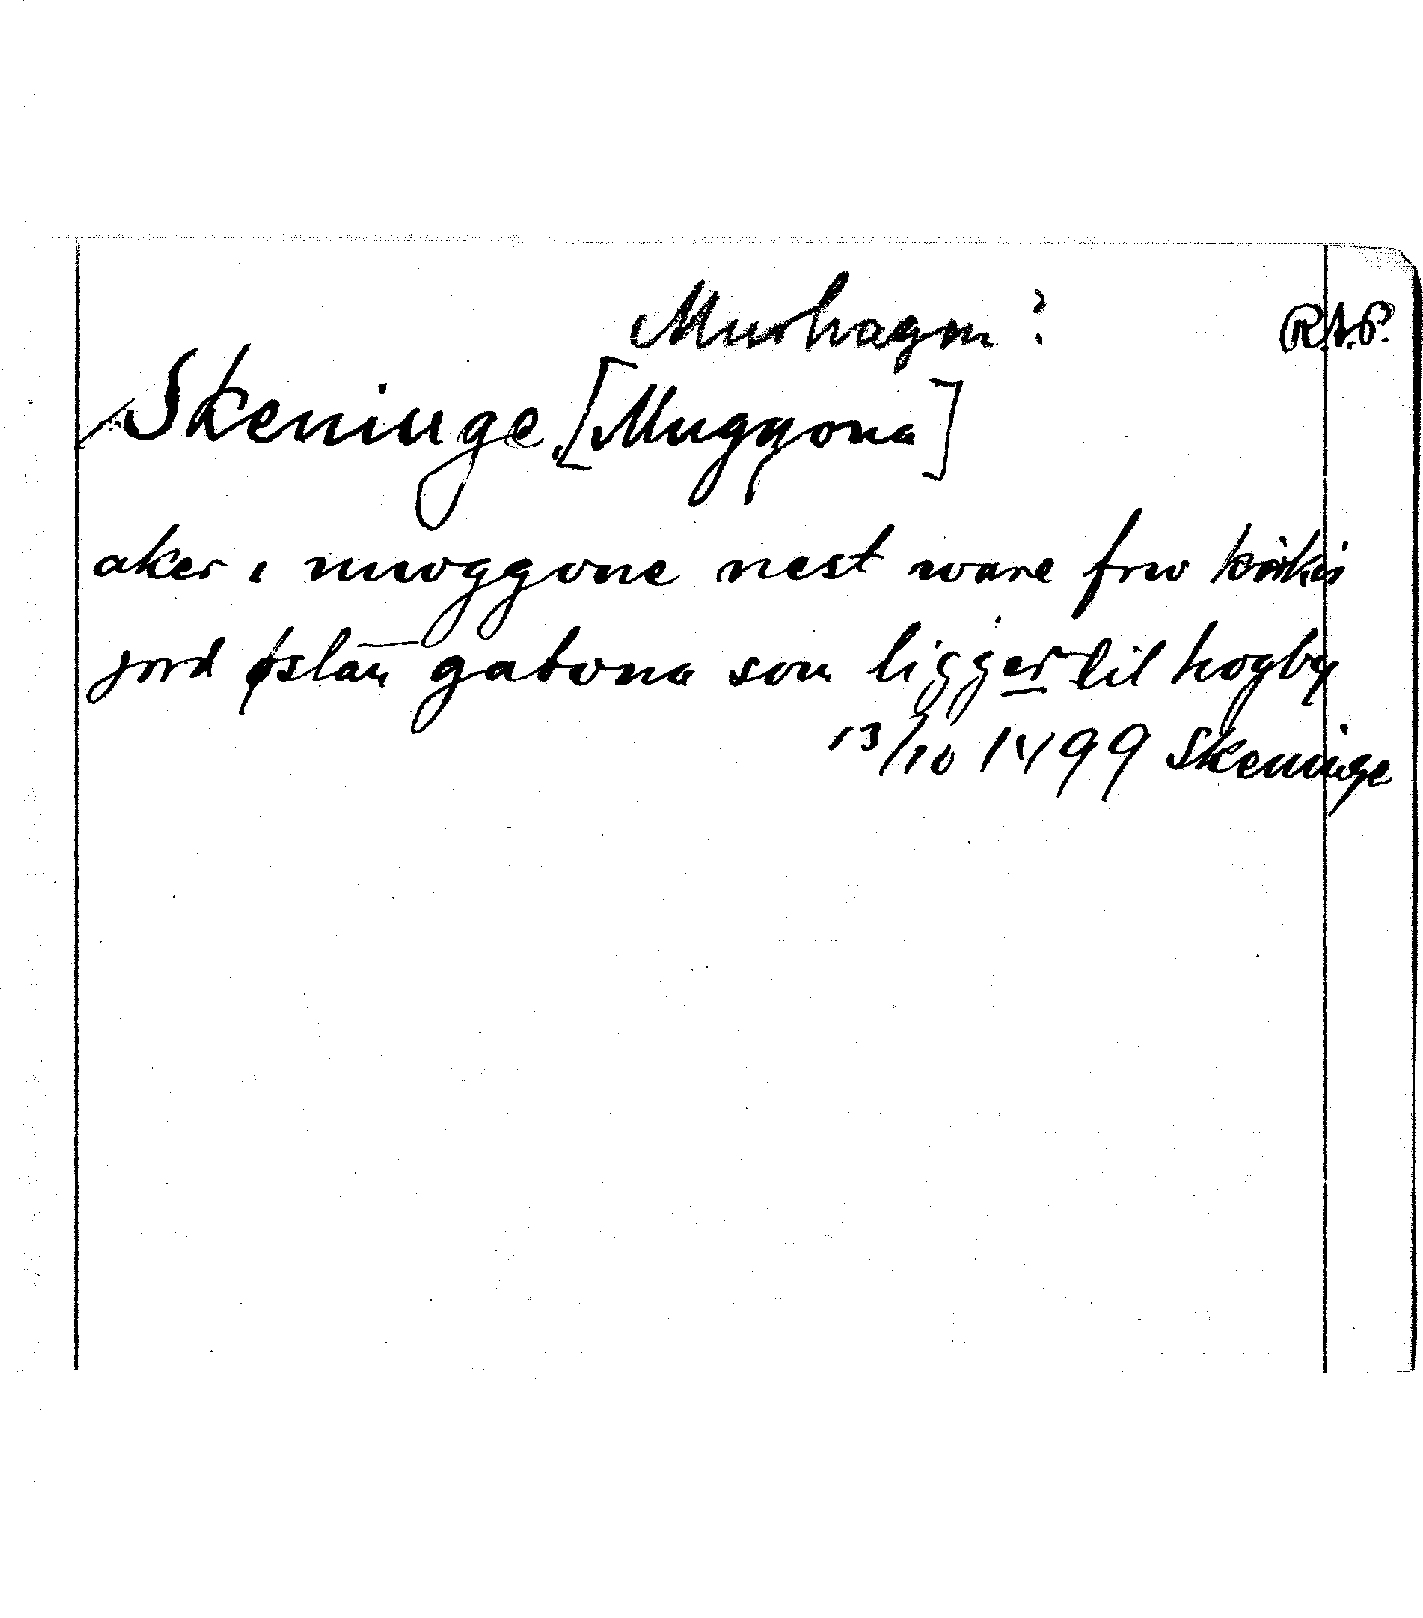 Murhagen? R.A.P.
Skeninge [Muggona]
aker i mwggone nest ware frw kirkis
jord østan gatona som ligger til hogby
13/10 1499 Skeninge